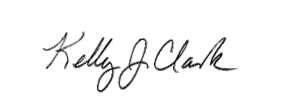 Kelly J. Clark